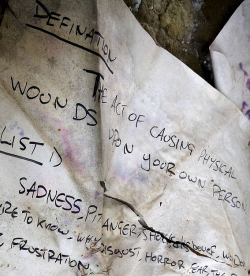 DEFINATION
THE ACT OF CAUSING PHYSICAL
WOUNDS UPON YOUR OWN PERSON
LIST 1)
SADNESS, PITY, ANGER,
TO KNOW. WHY, DISGUST, HORROR
FRUSTRATION.